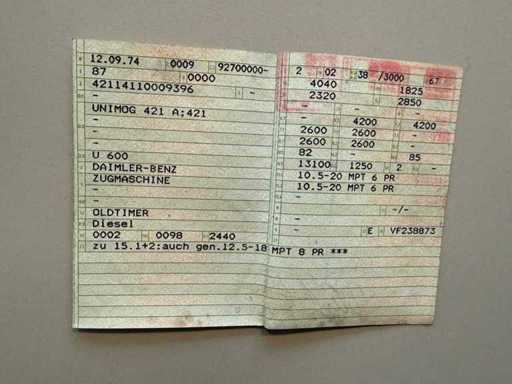 12.09.74 0009 92700000-
87 0000
42114110009396 -
-
UNIMOG 421 A;421
-
-
-
U 600
DAIMLER-BENZ
ZUGMASCHINE
-
OLDTIMER
Diesel
0002 0098 2440
zu 15.1+2:auch gen.12.5-18 MPT 8 PR ***
2 02 38 /3000 67
4040 1825
2320 2850
- - -
- 4200 4200
2600 2600 -
2600 2600 -
82 - 85
13100 1250 2 -
10.5-20 MPT 6 PR
10.5-20 MPT 6 PR
-
- -/-
-
- E VF238873